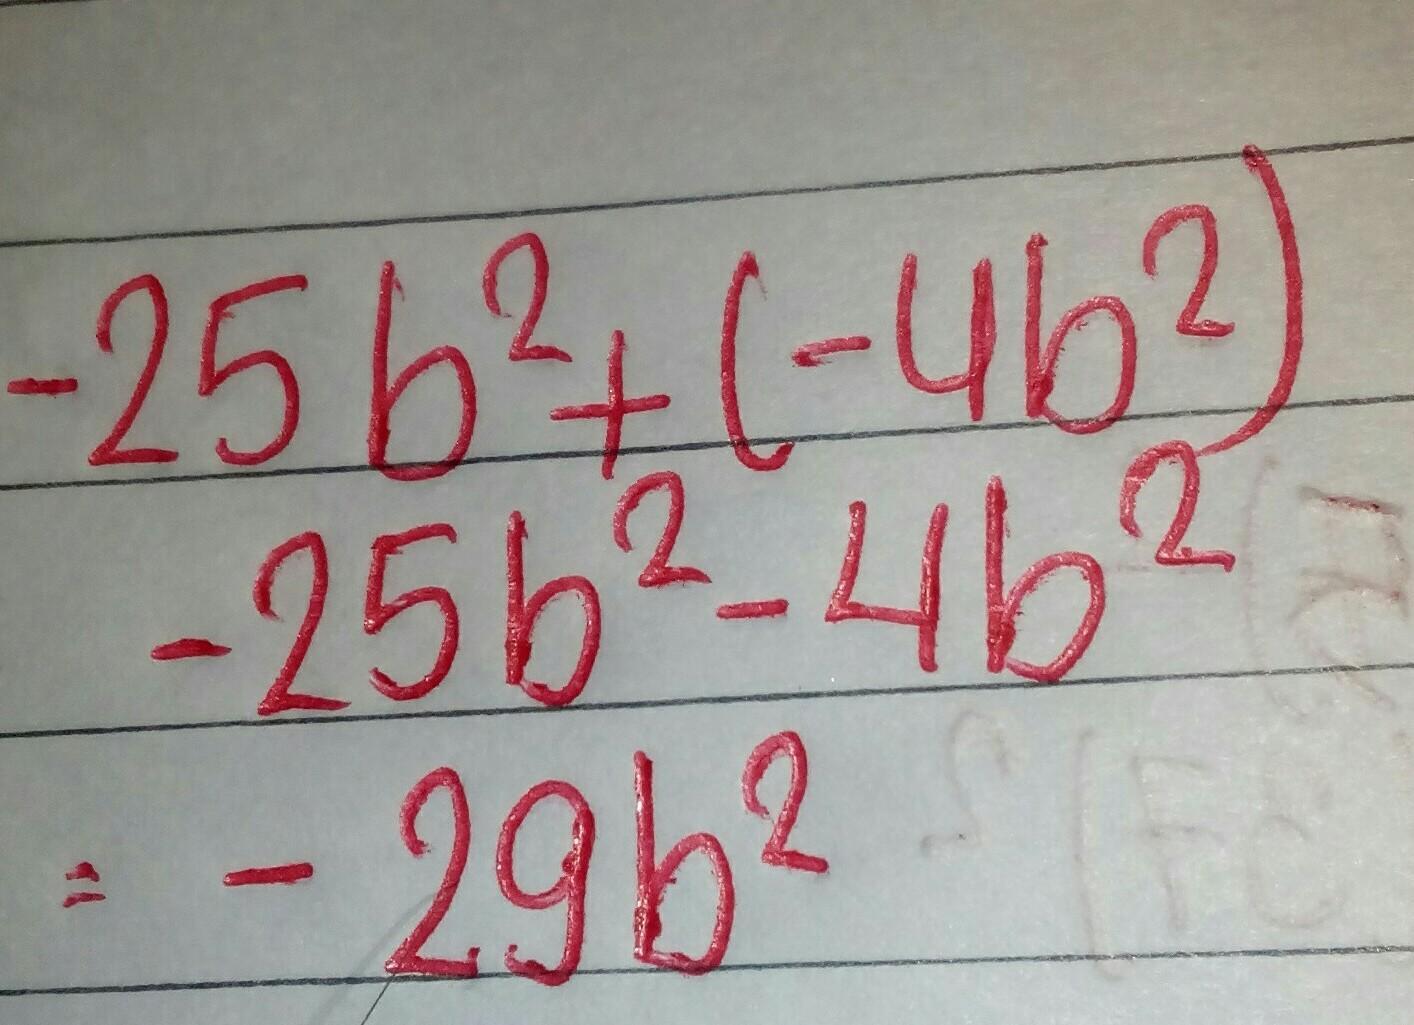 -25b²+(-4b²)
-25b²-4b²
= -29b²